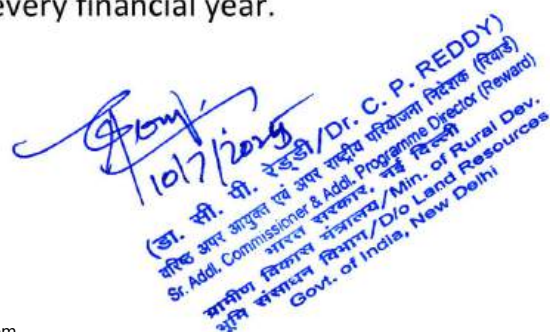 every financial year.
10/7/2025
(डा. सी. पी. रेड्डी/Dr. C. P. REDDY)
वरिष्ठ अपर आयुक्त एवं अपर राष्ट्रीय परियोजना निदेशक (रिवार्ड)
Sr. Addl. Commissioner & Addl. Programme Director (Reward)
भारत सरकार, नई दिल्ली
ग्रामीण विकास मंत्रालय/Min. of Rural Dev.
भूमि संसाधन विभाग/D/o Land Resources
Govt. of India, New Delhi